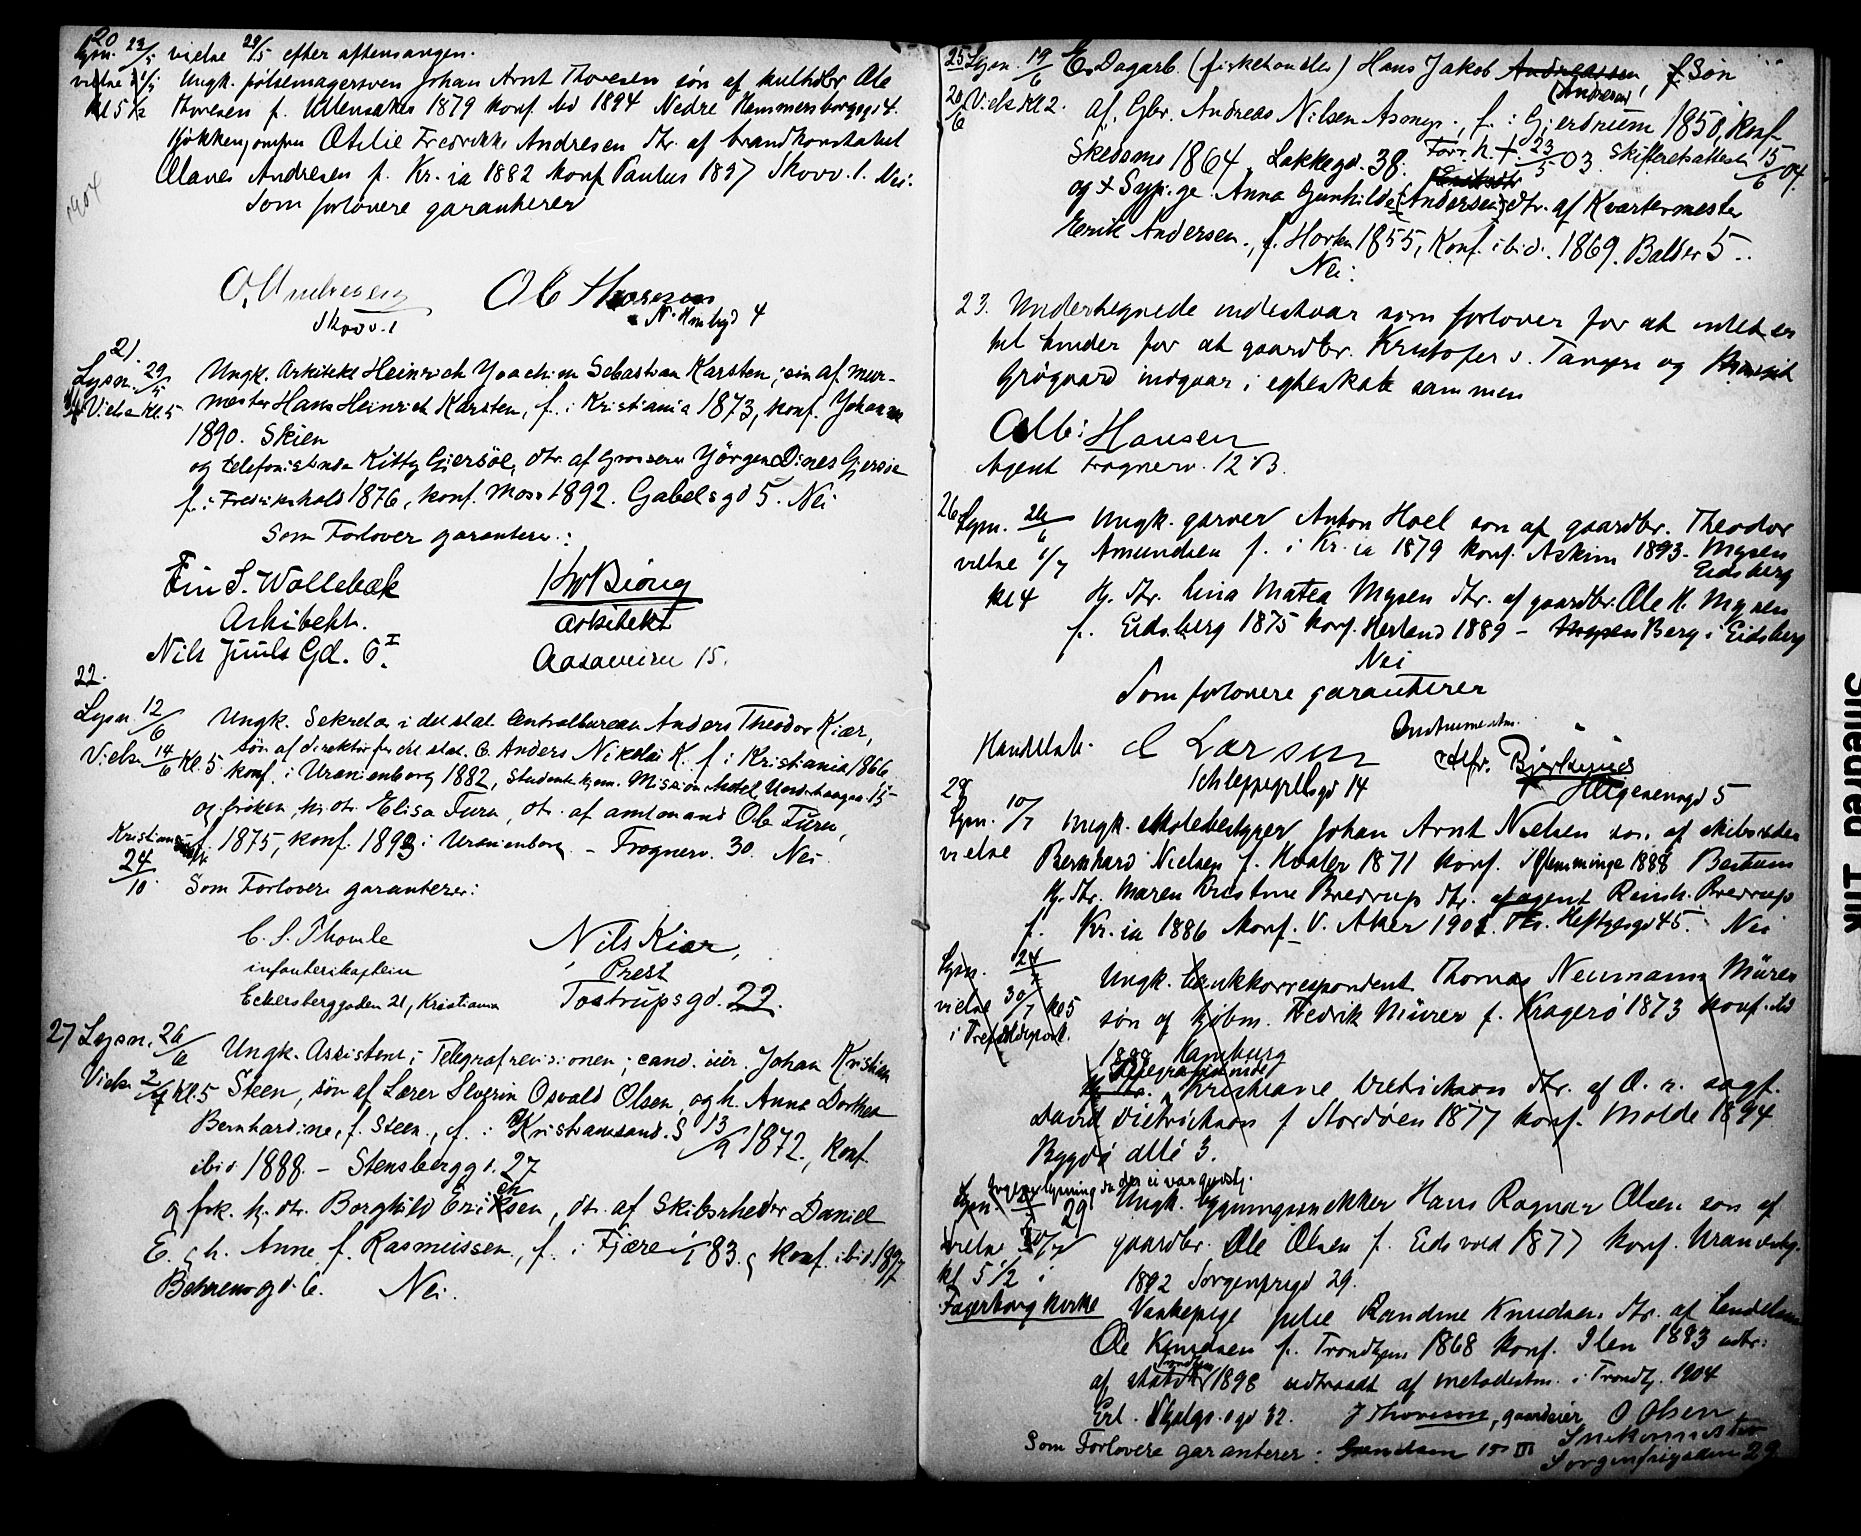 20
Lysn. 23/5 vielse 29/5 efter aftensangen.
Ungk. pølsemagersven Johan Arnt Thoresen søn af kulhdlr Ole
Thoresen f. Ullensaker 1879 konf. ibd 1894 Nedre Hammersborggd 4.
kjøkkenjomfru Othilie Fredrikke Andresen dtr. af brandkonstabel
Olaves Andresen f. Kr.ia 1882 konf Paulus 1897 Skovv. 1. Nei.
Som forlovere garanterer
1904
O. Andresen
Skovv. 1
Ole Thoresen
N. Hmbgd 4
21.
Lysn. 29/5
Vielse Kl. 5
Ungk. Arkitekt Heinrich Joachim Sebastian Karsten, søn af mur-
mester Hans Heinrich Karsten, f. i Kristiania 1873, konf. Johannes
1890. Skien
og telefonistinde Kitty Gjersøe, dtr. af Grosserer Jörgen Dines Gjersøe
f. i Fredrikshald 1876, konf. Moss 1892. Gabelsgd 5. Nei
Som Forlover garanterer:
Finn S. Wollebæk
Arkitekt.
Nils Juuls Gd. 6 I
Kr Biong
arkitekt
Aasaveien 15.
22.
Lysn. 12/6
Vielse 14/6 Kl. 5
Ungk. Sekretær i det stat. Centralbureau Anders Theodor Kiær,
søn af direktør for det stat. C. Anders Nikolai K. f. i Kristiania 1866
konf. i Uranienborg 1882, Student Missionshotel, Underhaugsv. 15
og frøken, hj. dtr. Elisa Furu, dtr. af amtmand Ole Furu,
f. 1875, konf. 1893 i Uranienborg – Frognerv. 30. Nei
24/10
Som Forlovere garanterer:
C. S. Thomle
infanterikaptein
Eckersberggaden 21, Kristiania
Nils Kiær,
Prest
Tostrupsgd. 22.
27 Lysn. 26/6
Vielse 2/7 Kl. 5
Ungk. Assistent i Telegrafrevisionen, cand. jur. Johan Kristian
Steen, søn af Lærer Severin Osvald Olsen, og h. Anna Dorthea
Bernhardine, f. Steen, f. i Kristianssand. S 13/9 1872, Konf.
ibid 1888. – Stensberggd. 27
og frk. hj. dtr. Borghild Eriksen, dtr. af Skibsrheder Daniel
E. og h. Anne f. Rasmussen, f. i Fjære 83. Konf. ibid. 1897
Behrensgd. 6. Nei.
25 Lysn. 19/6 E. Dagarb. (fiskehandler) Hans Jakob Andreassen Søn
(Andersen)
20/6 Vielse Kl 2.
af. Gbr. Andreas Nilsen Asmyr, f. i Gjerdrum 1850, Konf
Skedsmo 1864. Lakkegd. 38. Forr. h. †. 23/5 03. Skifteretsattest 15/6 04.
og Syp.ge. Anna Gunhilde Andersen dtr. af Kvartermester
Erik Andersen, f. Horten 1855, Konf. ibid. 1869. Balder 5.
Nei.
23. Undertegnede indestaar som forlover for at intet er
til hinder for at gaardbr. Kristofer Tangen og
Grøgaard indgaar i egteskab sammen
Alb: Hansen
Agent Frognerv. 12 B.
26
Lysn. 26/6
vielse 1/7
kl 4
Ungk. garver Anton Hoel søn af gaardbr. Theodor
Amundsen f. i Kr.ia 1879 konf. Askim 1893 – Mysen
Eidsberg
Hj. dtr. Lina Matea Mysen dtr. af gaardbr. Ole H. Mysen
f. Eidsberg 1875 konf. Herland 1889 – Mysen Berg i Eidsberg
Nei
Som forlovere garanterer
C Larsen
Schleppegrellsgd 14
Instrumentm.
Alfr. Bjerknes
Helgesensgd 5
28
Lysn. 10/7
vielse
Ungk. skolebestyrer Johan Arnt Nielsen søn af skibsreder
Bernhard Nielsen f. Hvaler 1871 konf. Glemminge 1888 Bestum
Hj. dtr. Maren Kristine Bredrup dtr. af agent Reinh. Bredrup
f. Kr.ia 1886 konf. V. Aker 1901. Ths. Heftyesgd 45. Nei
Lysn. 24/7
vielse 30/7 kl 5
Ungk. bankkorrespondent Thomas Neumann Mürer
søn af kjøbm. Fredrik Mürer f. Kragerø 1873 konf. ibd
1888 Hamburg
Telegrafistinde
Hj. dtr. Kristiane Dietrichson dtr. af O. r. sagf.
David Dietrichson f Stordøen 1877 konf. Molde 1894
Bygdø allé 3.
Ingen lysning da der ei var gudstj.
Lysn. 29
vielse 30/7
kl 5 1/2 i
Fagerborg kirke
Ungk. bygningssnekker Hans Ragnar Olsen søn af
gaardbr. Ole Olsen f. Eidsvold 1877 konf. Uranienbg.
1892 Sorgenfrigd 29.
Vaskepige Julie Randine Knudsen dtr. af
Ole Knudsen f. Trondhjem 1868 konf. Ilen 1883 udtr.
af statsk. 1898 udtraadt af metodistm. i Trondhj. 1904
J Thoreson, gaardeier O Olsen
Snekermester
Som Forlovere garanterer: 15 III Sorgenfrigaden 29.